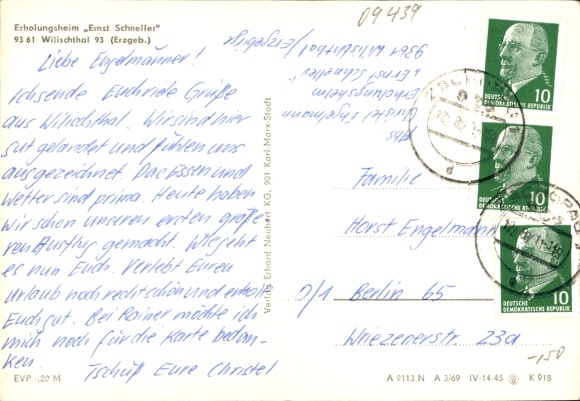 Erholungsheim „Ernst Schneller"
93 61 Wilischthal 93 (Erzgeb.)
Liebe Engelmänner!
Ich sende Euch viele Grüße
aus Wilischthal. Wir sind hier
gut gelandet und fühlen uns
ausgezeichnet. Das Essen und
Wetter sind prima. Heute haben
wir schon unseren ersten größe-
ren Ausflug gemacht. Wie geht
es nun Euch. Verlebt Euren
Urlaub noch recht schön und erholt
Euch gut. Bei Rainer möchte ich
mich noch für die Karte bedan-
ken.
Tschüß Eure Christel
EVP -,20 M
Verlag Erhard Neubert KG, 901 Karl-Marx-Stadt
09439
Abs
Christel Engelmann
Erholungsheim
"Ernst Schneller"
9361 Wilischthal/Erzgebirge
10
DEUTSCHE
DEMOKRATISCHE REPUBLIK
10
DEUTSCHE
DEMOKRATISCHE REPUBLIK
10
DEUTSCHE
DEMOKRATISCHE REPUBLIK
Familie
Horst Engelmann
Berlin 65
Wriezenerstr. 23a
-,50
A 9113 N A 3/69 IV-14-45 K 918